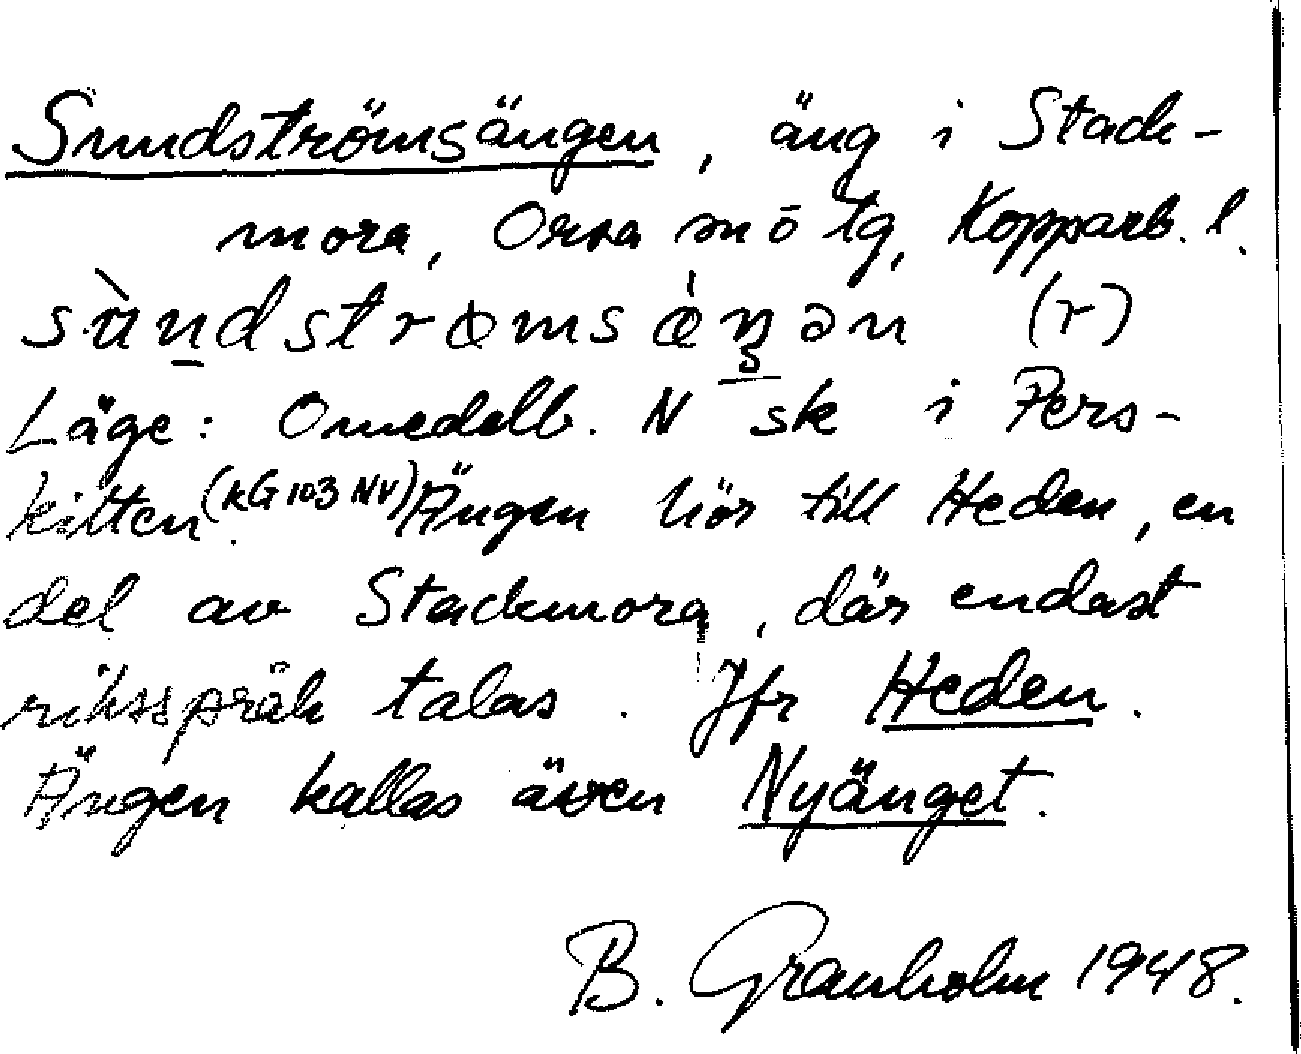 Sundströmsängen, äng i Stack-
mora, Orsa snö tg, Kopparb. l.
sùndstrømsǿŋən (r)
Läge: Omedelb. N sk i Pers-
kitten (kG 103 NV). Ängen hör till Heden, en
del av Stackmora, där endast
riksspråk talas. Jfr Heden.
Ängen kallas även Nyänget.
B. Granholm 1948.